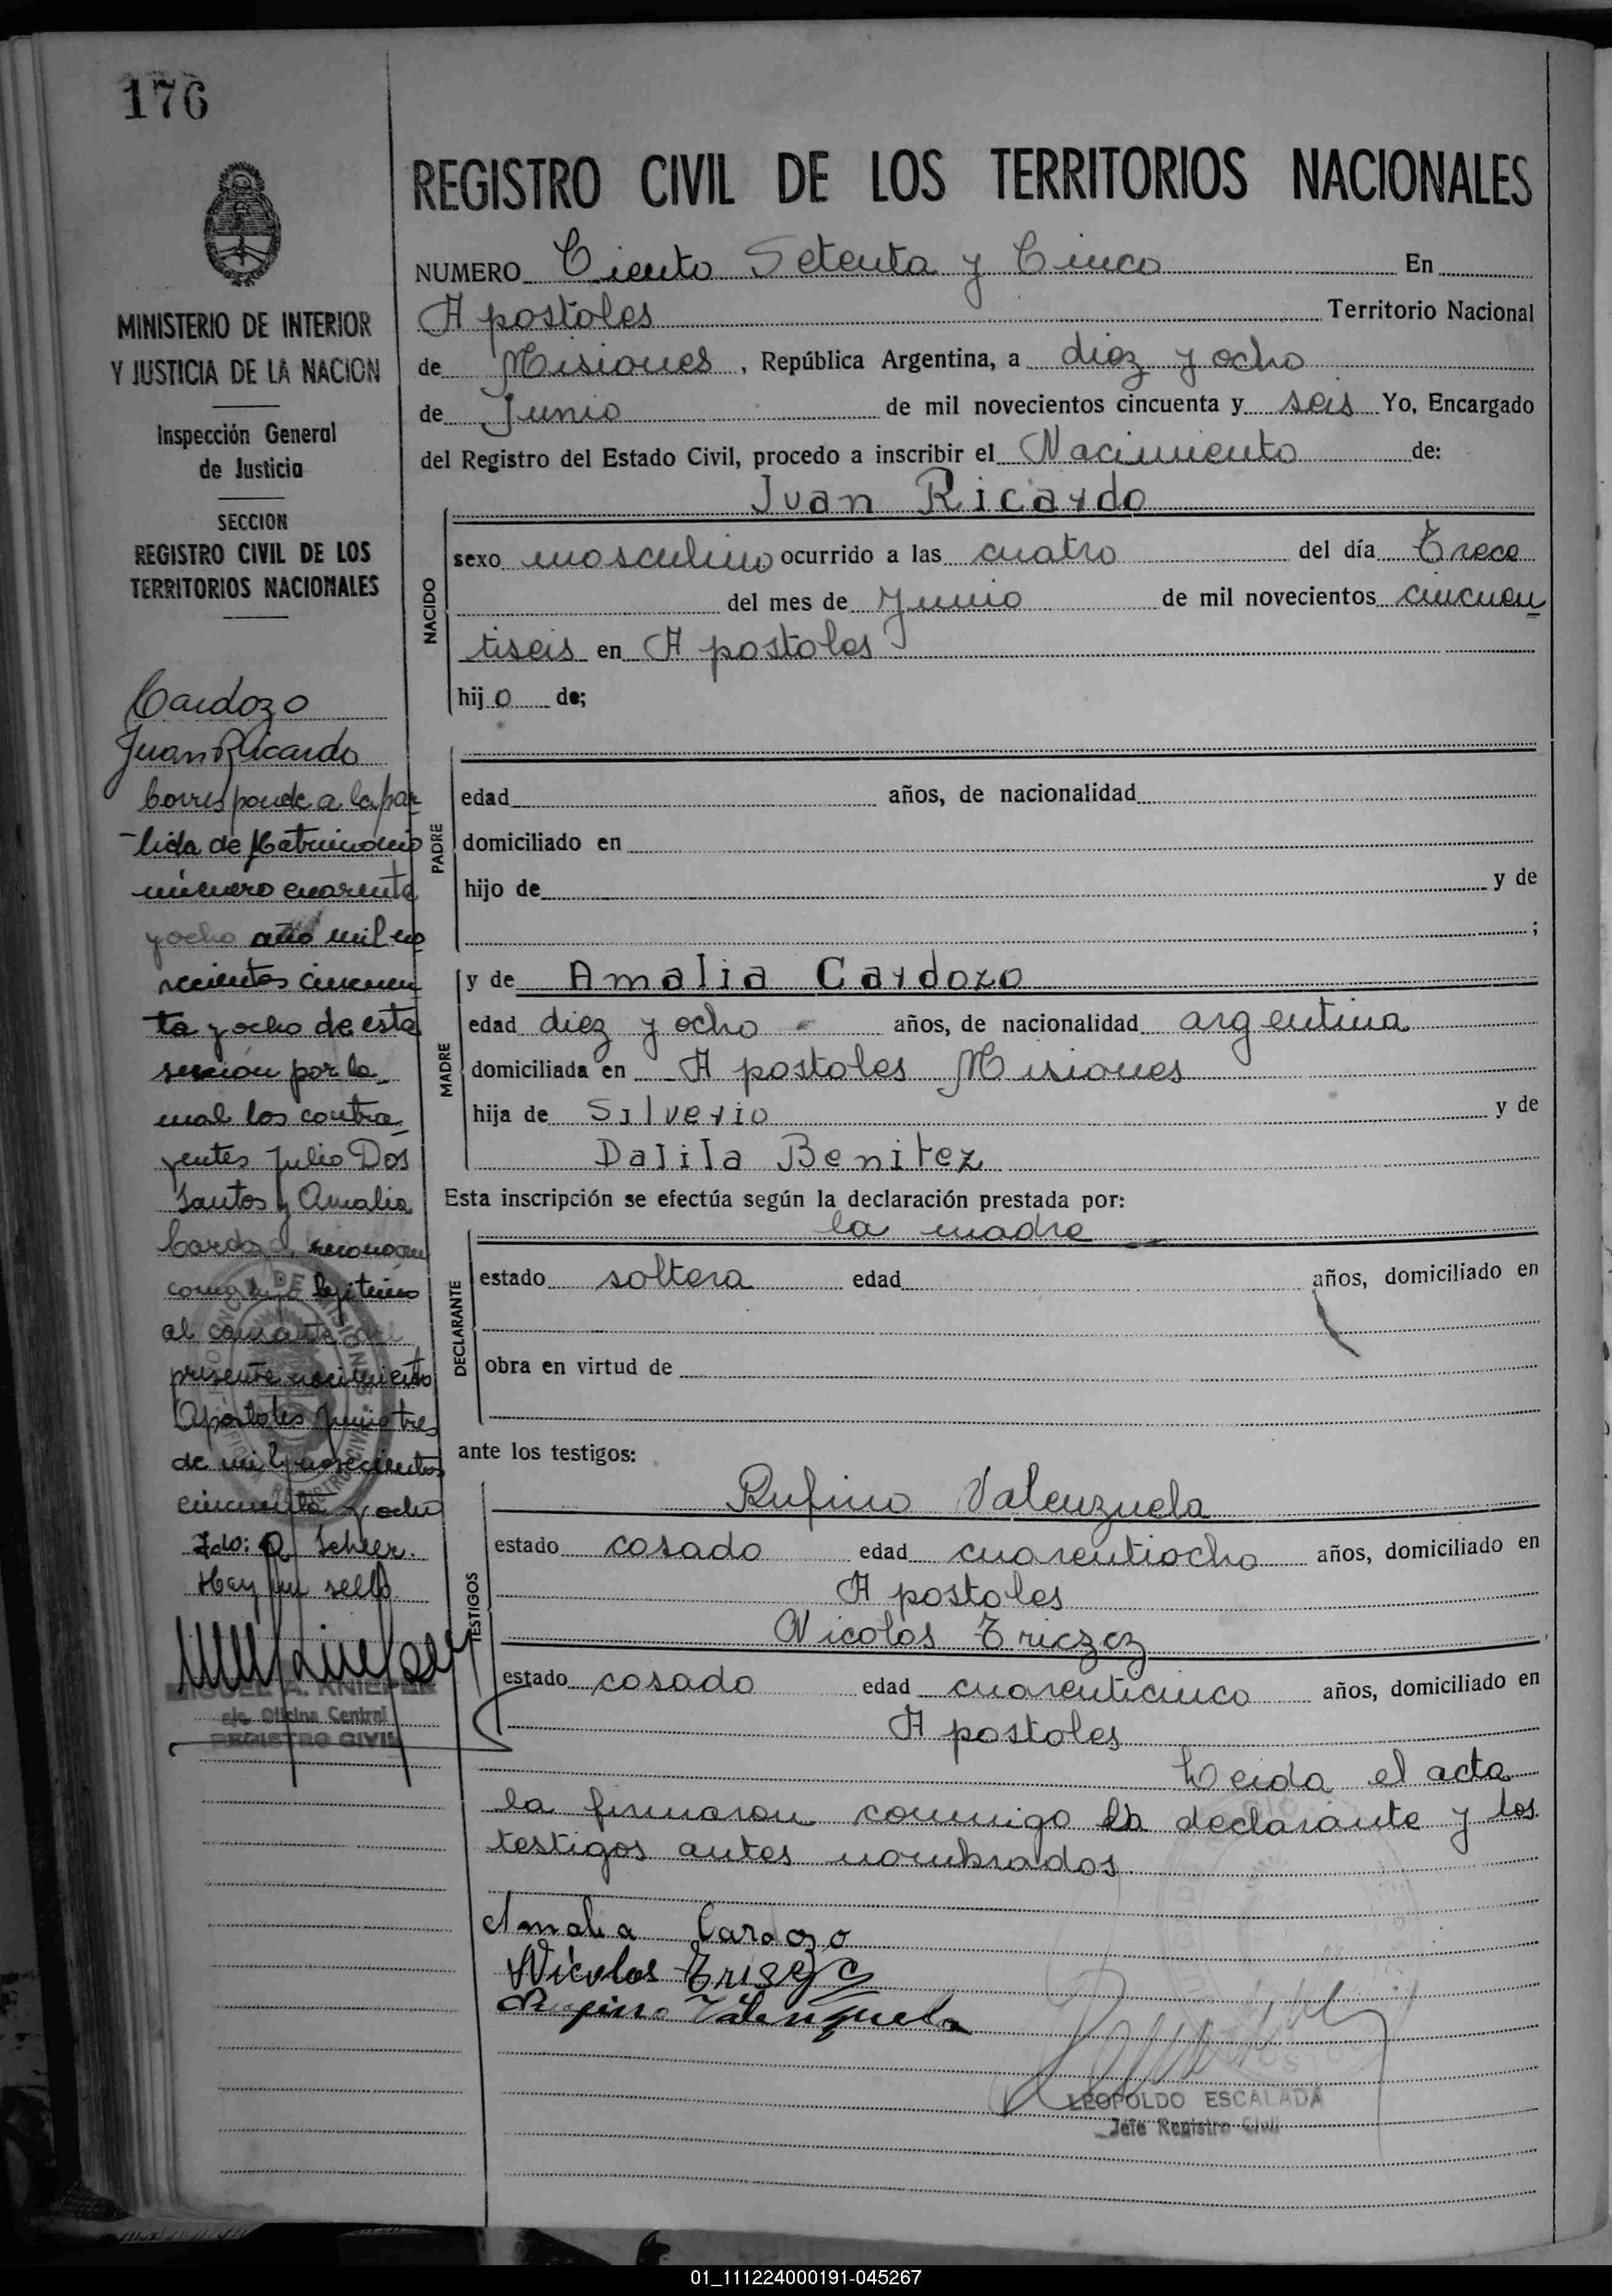 176
REGISTRO CIVIL DE LOS TERRITORIOS NACIONALES
NUMERO Ciento Setenta y Cinco En
Apostoles Territorio Nacional
de Misiones, República Argentina, a diez y ocho
de Junio de mil novecientos cincuenta y seis Yo, Encargado
del Registro del Estado Civil, procedo a inscribir el Nacimiento de:
MINISTERIO DE INTERIOR
Y JUSTICIA DE LA NACION
Inspección General
de Justicia
SECCION
REGISTRO CIVIL DE LOS
TERRITORIOS NACIONALES
Cardozo
Juan Ricardo
Corresponde a la par
-tida de Matrimonio
número cuarenta
y ocho año mil no
vecientos cincuen
ta y ocho de esta
sección por la
cual los contra
yentes Julio Dos
Santos y Amalia
Cardozo reconocen
como hijo legitimo
al causante del
presente nacimiento
Apostoles Junio tres
de mil novecientos
cincuenta y ocho
Fdo: A Scheer.
Hay un sello.
MIGUEL A. KNIEPER
e/c. Oficina Central
REGISTRO CIVIL
NACIDO
Juan Ricardo
sexo masculino ocurrido a las cuatro del día Trece
del mes de Junio de mil novecientos cincuen
tiseis en Apostoles
hijo de;
PADRE
edad años, de nacionalidad
domiciliado en
hijo de y de
;
MADRE
y de Amalia Cardozo
edad diez y ocho años, de nacionalidad argentina
domiciliada en Apostoles Misiones
hija de Silverio y de
Dalila Benitez
Esta inscripción se efectúa según la declaración prestada por:
DECLARANTE
la madre
estado soltera edad años, domiciliado en
obra en virtud de
ante los testigos:
TESTIGOS
Rufino Valenzuela
estado casado edad cuarentiocho años, domiciliado en
Apostoles
Nicolas Triczcz
estado casado edad cuarenticinco años, domiciliado en
Apostoles
Leida el acta
la firmaron conmigo la declarante y los
testigos antes nombrados.
Amalia Cardozo
Nicolas
Rufino Valenzuela
LEOPOLDO ESCALADA
Jefe Registro Civil
01_111224000191-045267